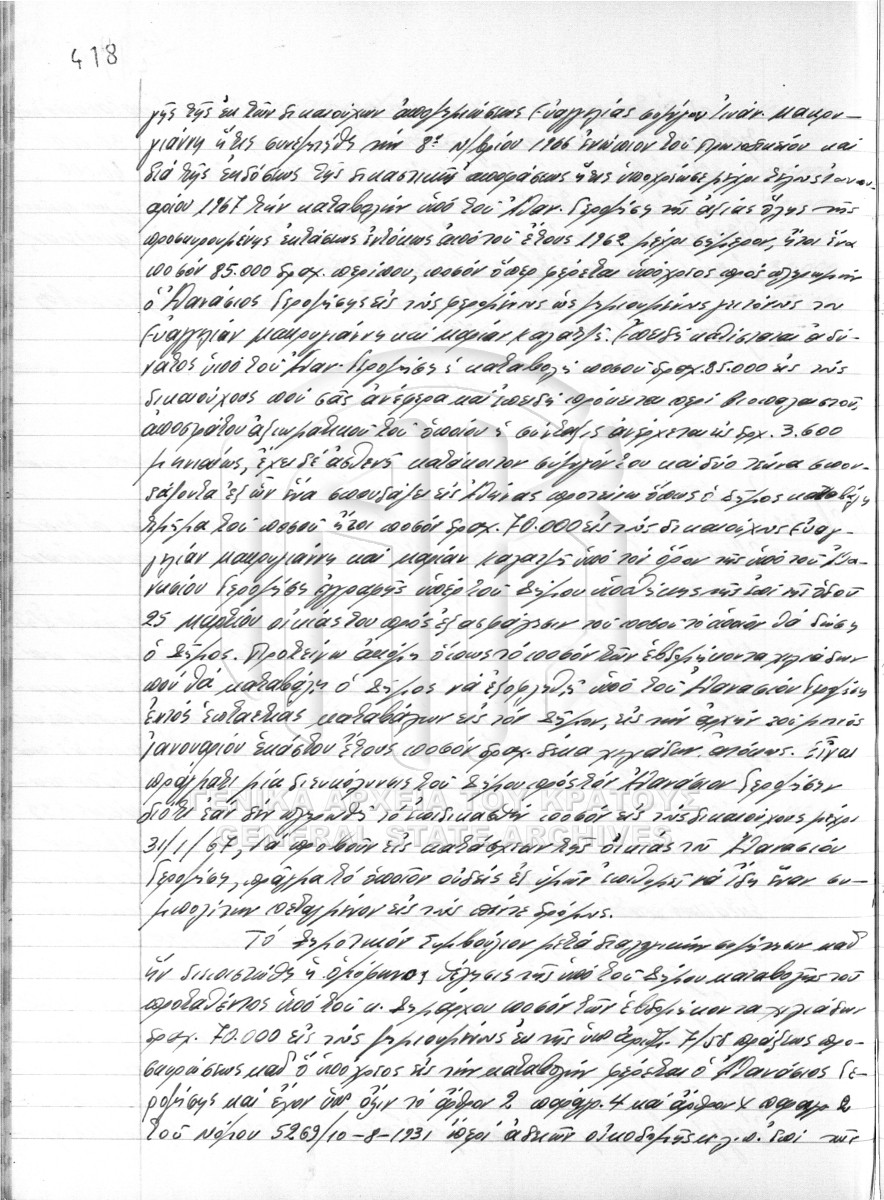 418
γῆς τῆς ἐκ τῶν δικαιούχων ἀποζημιώσεως Εὐαγγελίας συζύγου Ἰωάν. Μακρυ-
γιάννη ἥτις συνεζητήθη τήν 8ην Ν/βρίου 1966 ἐνώπιον τοῦ καί
διά τῆς ἐκδόσεως τῆς δικαστικῆς ἀποφάσεως ἥτις ὑποχρέωσε μέχρι τέλους Ἰανου-
αρίου 1967 τήν καταβολήν ὑπό τοῦ Ἀθαν. τῆς ἀξίας ὅλης τῆς
προσκυρουμένης ἐκτάσεως ἐντόκως ἀπό τοῦ ἔτους 1962 μέχρι σήμερον, ἤτοι ἕνα
ποσόν 85.000 δραχ. περίπου, ποσόν ὅπερ φέρεται ὑπόχρεος πρός πληρωμήν
ὁ Ἀθανάσιος εἰς τάς φερομένας ὡς ζημιουμένας γείτονας του
Εὐαγγελίαν Μακρυγιάννη καί Μαρίαν Ἐπειδή καθίσταται ἀδύ-
νατος ὑπό τοῦ Ἀθαν. ἡ καταβολή ποσοῦ δραχ. 85.000 εἰς τούς
δικαιούχους πού σᾶς ἀνέφερα καί ἐπειδή πρόκειται περί βιοπαλαιστοῦ,
ἀποστράτου ἀξιωματικοῦ τοῦ ὁποίου ἡ σύνταξις ἀνέρχεται εἰς δρχ. 3.600
μηνιαίως, ἔχει δέ ἀσθενῆ κατάκοιτον σύζυγόν του καί δύο τέκνα σπου-
δάζοντα ἐξ ὧν ἕνα σπουδάζει εἰς Ἀθήνας προτείνω ὅπως ὁ Δῆμος καταβάλῃ
τμῆμα τοῦ ποσοῦ ἤτοι ποσόν δραχ. 70.000 εἰς τάς δικαιούχους Εὐαγ-
γελίαν Μακρυγιάννη καί Μαρίαν ὑπό τόν ὅρον τῆς ὑπό τοῦ Ἀθα-
νασίου ἐγγραφῆς ὑπέρ τοῦ Δήμου ὑποθήκης τῆς ἐπί τῆς ὁδοῦ
25 Μαρτίου οἰκίας του πρός ἐξασφάλισιν τοῦ ποσοῦ τό ὁποῖον θά δώσῃ
ὁ Δῆμος. Προτείνω ἀκόμη ὅπως τό ποσόν τῶν ἑβδομήκοντα χιλιάδων
πού θά καταβάλῃ ὁ Δῆμος νά ἐξοφληθῇ ὑπό τοῦ Ἀθανασίου
ἐντός ἑπταετίας καταβάλων εἰς τόν Δῆμον, εἰς τήν ἀρχήν τοῦ μηνός
Ἰανουαρίου ἑκάστου ἔτους ποσόν δραχ. δέκα χιλιάδων ἀτόκως. Εἶναι
πράγματι μία διευκόλυνσις τοῦ Δήμου πρός τόν Ἀθανάσιον
διότι ἐάν δέν πληρωθῇ τό ἐπιδικασθέν ποσόν εἰς τούς δικαιούχους μέχρι
31/1/67, θά προβοῦν εἰς κατάσχεσιν τῆς οἰκίας τοῦ Ἀθανασίου
πρᾶγμα τό ὁποῖον οὐδείς ἐξ ὑμῶν ἐπιθυμεῖ νά ἴδῃ ἕναν συ-
μπολίτην πεταγμένον εἰς τούς πέντε δρόμους.
Τό Δημοτικόν Συμβούλιον μετά διαλογικήν συζήτησιν καθ'
ἥν διεπιστώθη ἡ ὁμόφωνος θέλησις τῆς ὑπό τοῦ Δήμου καταβολῆς τοῦ
προταθέντος ὑπό τοῦ κ. Δημάρχου ποσοῦ τῶν ἑβδομήκοντα χιλιάδων
δραχ. 70.000 εἰς τάς ζημιουμένας ἐκ τῆς ὑπ' ἀριθ. 7/58 πράξεως προ-
σκυρώσεως καθ' ὅ ὑπόχρεος εἰς τήν καταβολήν φέρεται ὁ Ἀθανάσιος
καί ἔχον ὑπ' ὄψιν τό ἄρθρον 2 παράγρ. 4 καί ἄρθρον παραγρ. 2
τοῦ Νόμου 5269/10-8-1931 περί ἀδειῶν οἰκοδομῆς κ.λ.π. ἐπί τῆς
ΓΕΝΙΚΑ ΑΡΧΕΙΑ ΤΟΥ ΚΡΑΤΟΥΣ
GENERAL STATE ARCHIVES